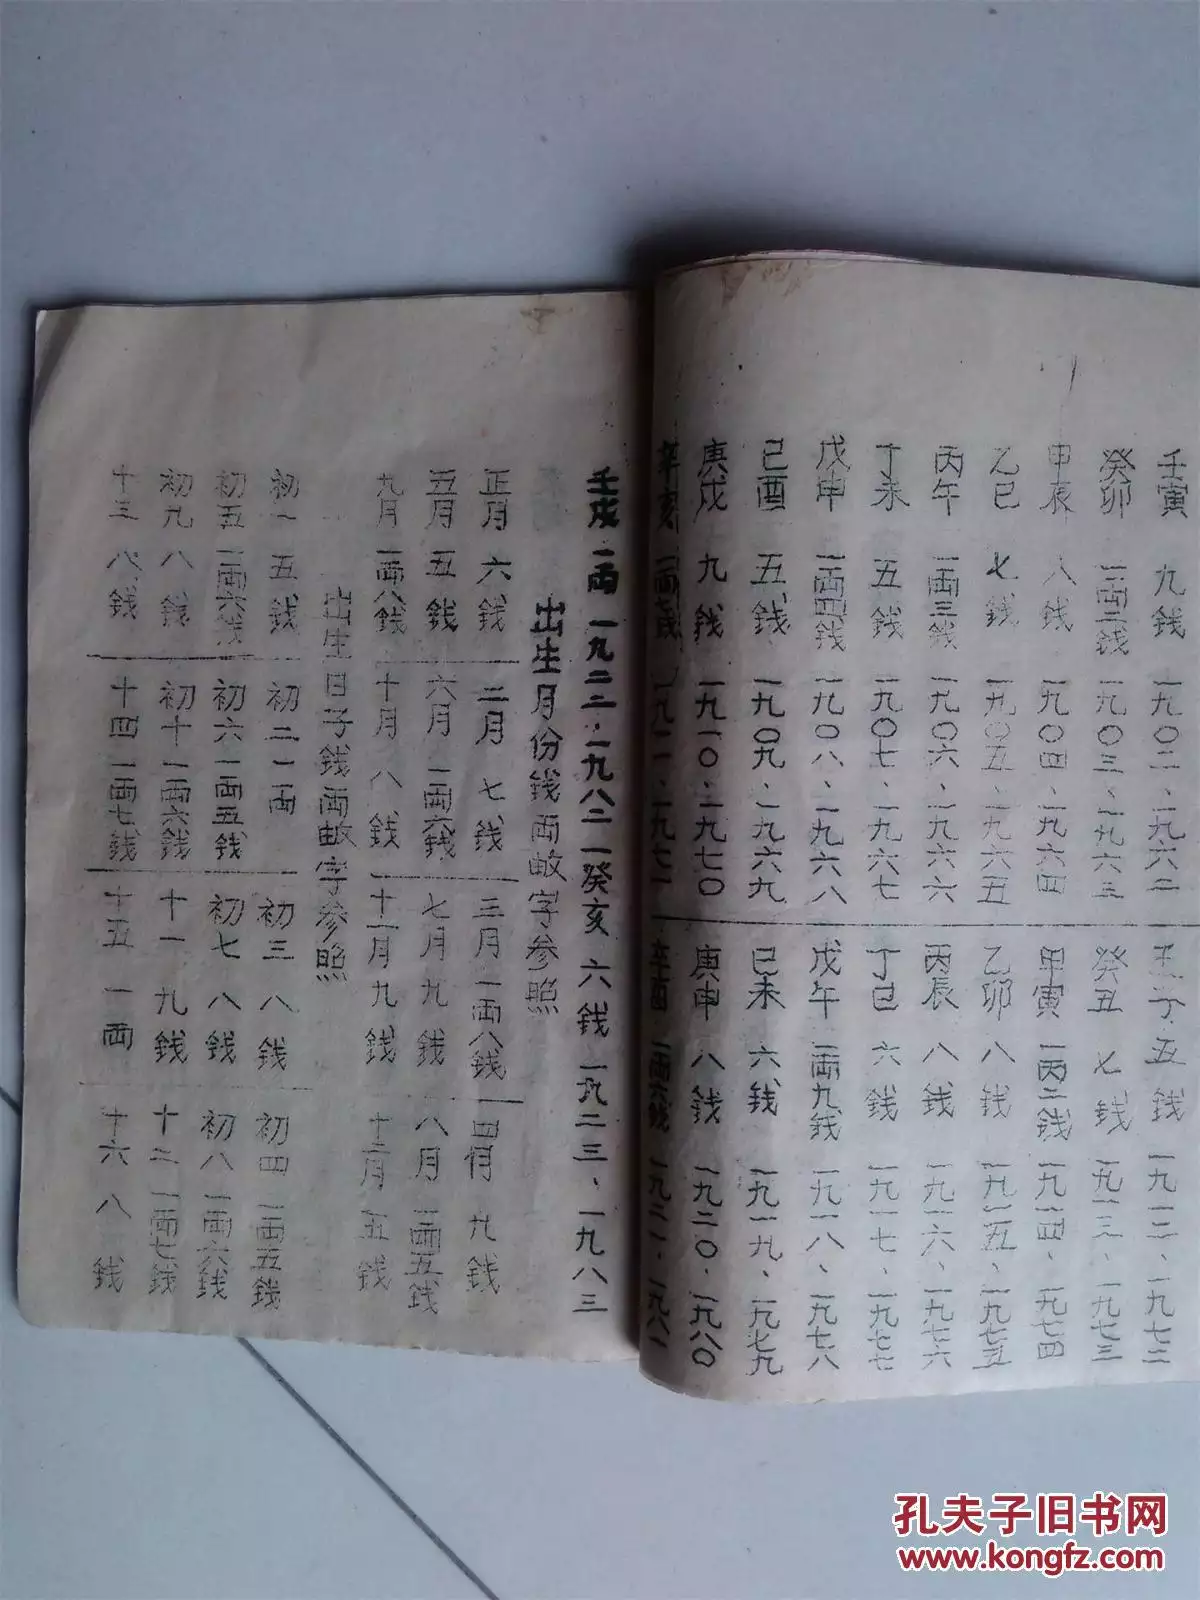 壬寅 九銭 一九〇二、一九六二
癸卯 一両二銭 一九〇三、一九六三
甲辰 八銭 一九〇四、一九六四
乙巳 七銭 一九〇五、一九六五
丙午 一両三銭 一九〇六、一九六六
丁未 五銭 一九〇七、一九六七
戊申 一両四銭 一九〇八、一九六八
己酉 五銭 一九〇九、一九六九
庚戌 九銭 一九一〇、一九七〇
辛亥 一両七銭 一九一一、一九七一
壬子 五銭 一九一二、一九七二
癸丑 七銭 一九一三、一九七三
甲寅 一丙二銭 一九一四、一九七四
乙卯 八銭 一九一五、一九七五
丙辰 八銭 一九一六、一九七六
丁巳 六銭 一九一七、一九七七
戊午 一両九銭 一九一八、一九七八
己未 六銭 一九一九、一九七九
庚申 八銭 一九二〇、一九八〇
辛酉 一両六銭 一九二一、一九八一
壬戌 一両 一九二二、一九八二一癸亥 六銭 一九二三、一九八三
出生月份銭両畝字参照
正月 六銭 二月 七銭 三月 一両八銭 四月 九銭
五月 五銭 六月 一両六銭 七月 九銭 八月 一両五銭
九月 一両八銭 十月 八銭 十一月 九銭 十二月 五銭
出生日子銭両畝字参照
初一 五銭 初二 一両 初三 八銭 初四 一両五銭
初五 一両六銭 初六 一両五銭 初七 八銭 初八 一両六銭
初九 八銭 初十 一両六銭 十一 九銭 十二 一両七銭
十三 八銭 十四 一両七銭 十五 一両 十六 八銭
孔夫子旧书网
www.kongfz.com